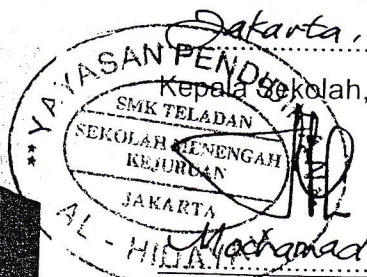 Jakarta,
Kepala Sekolah,
YAYASAN PENDIDIKAN
SMK TELADAN
SEKOLAH MENENGAH
KEJURUAN
JAKARTA
AL - HIDAYAH
Mochamad